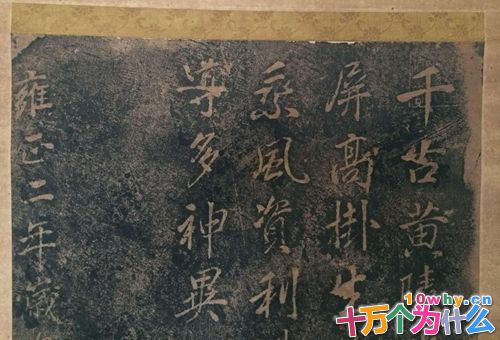 千古黄陵
屏高掛生
乘風資利
導多神異
雍正二年歲
10why.cn
十万个为什么